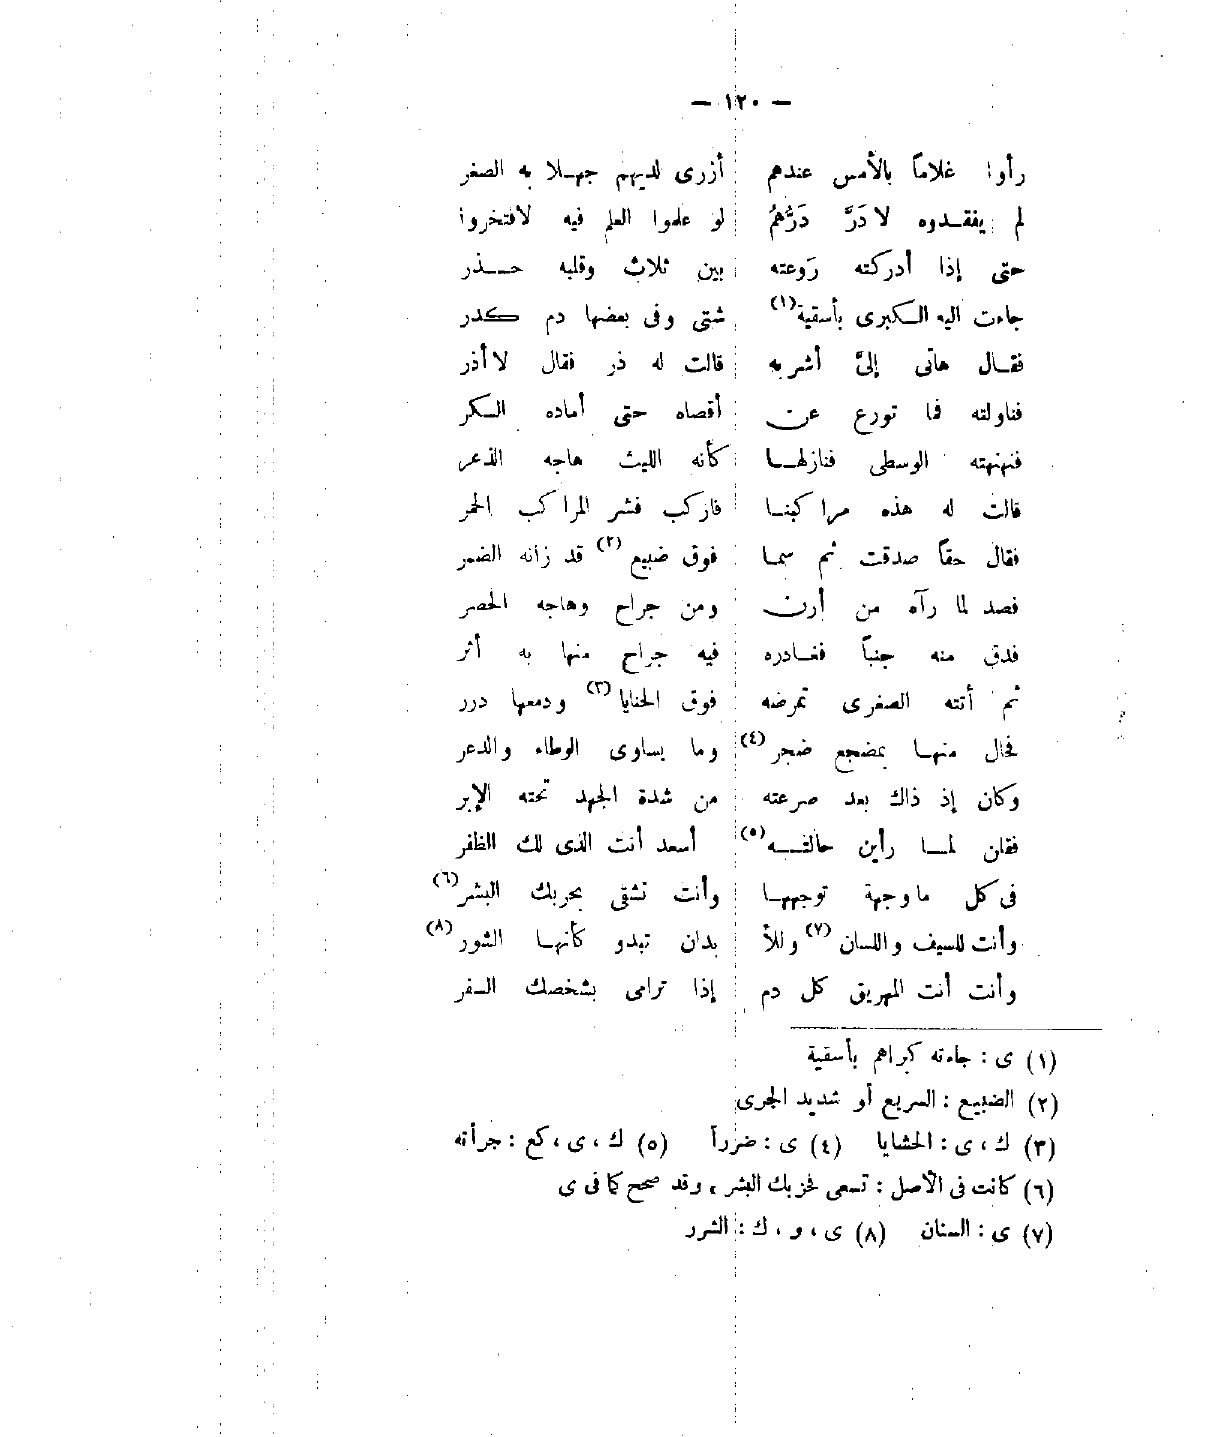 — ١٢٠ —
رأوا غلاماً بالأمس عندهم أزرى لديهم جهـلا به الصغر
لم يفقـدوه لا دَرَّ دَرُّهمُ لو علموا العلم فيه لافتخروا
حتى إذا أدركته رَوعته بين ثلاث وقلبه حـــذر
جاءت اليه الـكبرى بأسقية(١) شتى وفى بعضها دم كدر
فقـال هاتى إلىَّ أشربه قالت له ذر فقال لا أذر
فناولته فما تورع عن أقصاه حتى أماده السكر
فنهنهته الوسطى فنازلهـا كأنه الليث هاجه الذعر
قالت له هذه مراكبنـا فاركب فشر المراكب الحمر
فقال حقاً صدقت ثم سمـا فوق ضبيع(٢) قد زانه الضمر
فصد لما رآه من أرن ومن جراح وهاجه الحصر
فدق منه جنباً فغـادره فيه جراح منها به أثر
ثم أتته الصغرى تمرضه فوق الحنايا(٣) ودمعها درر
فحال منهـا بمضجع ضجر(٤) وما يساوى الوطاء والدعر
وكان إذ ذاك بعد صرعته من شدة الجهد تحته الإبر
فقلن لمـا رأين حالتــه(٥) أسعد أنت الذى لك الظفر
فى كل ما وجهة توجههـا وأنت تشقى بحربك البشر(٦)
وأنت للسيف واللسان(٧) وللأ بدان تبدو كأنهـا الشور(٨)
وأنت أنت المهريق كل دم إذا ترامى بشخصك السفر
(١) ى : جاءته كبراهم بأسقية
(٢) الضبيع : السريع أو شديد الجرى
(٣) ك ، ى : الحشايا (٤) ى : ضرراً (٥) ك ، ى ، كع : جرأته
(٦) كانت فى الأصل : تسعى لحزبك البشر ، وقد صحح كما فى ى
(٧) ى : السنان (٨) ى ، و ، ك : الشرر